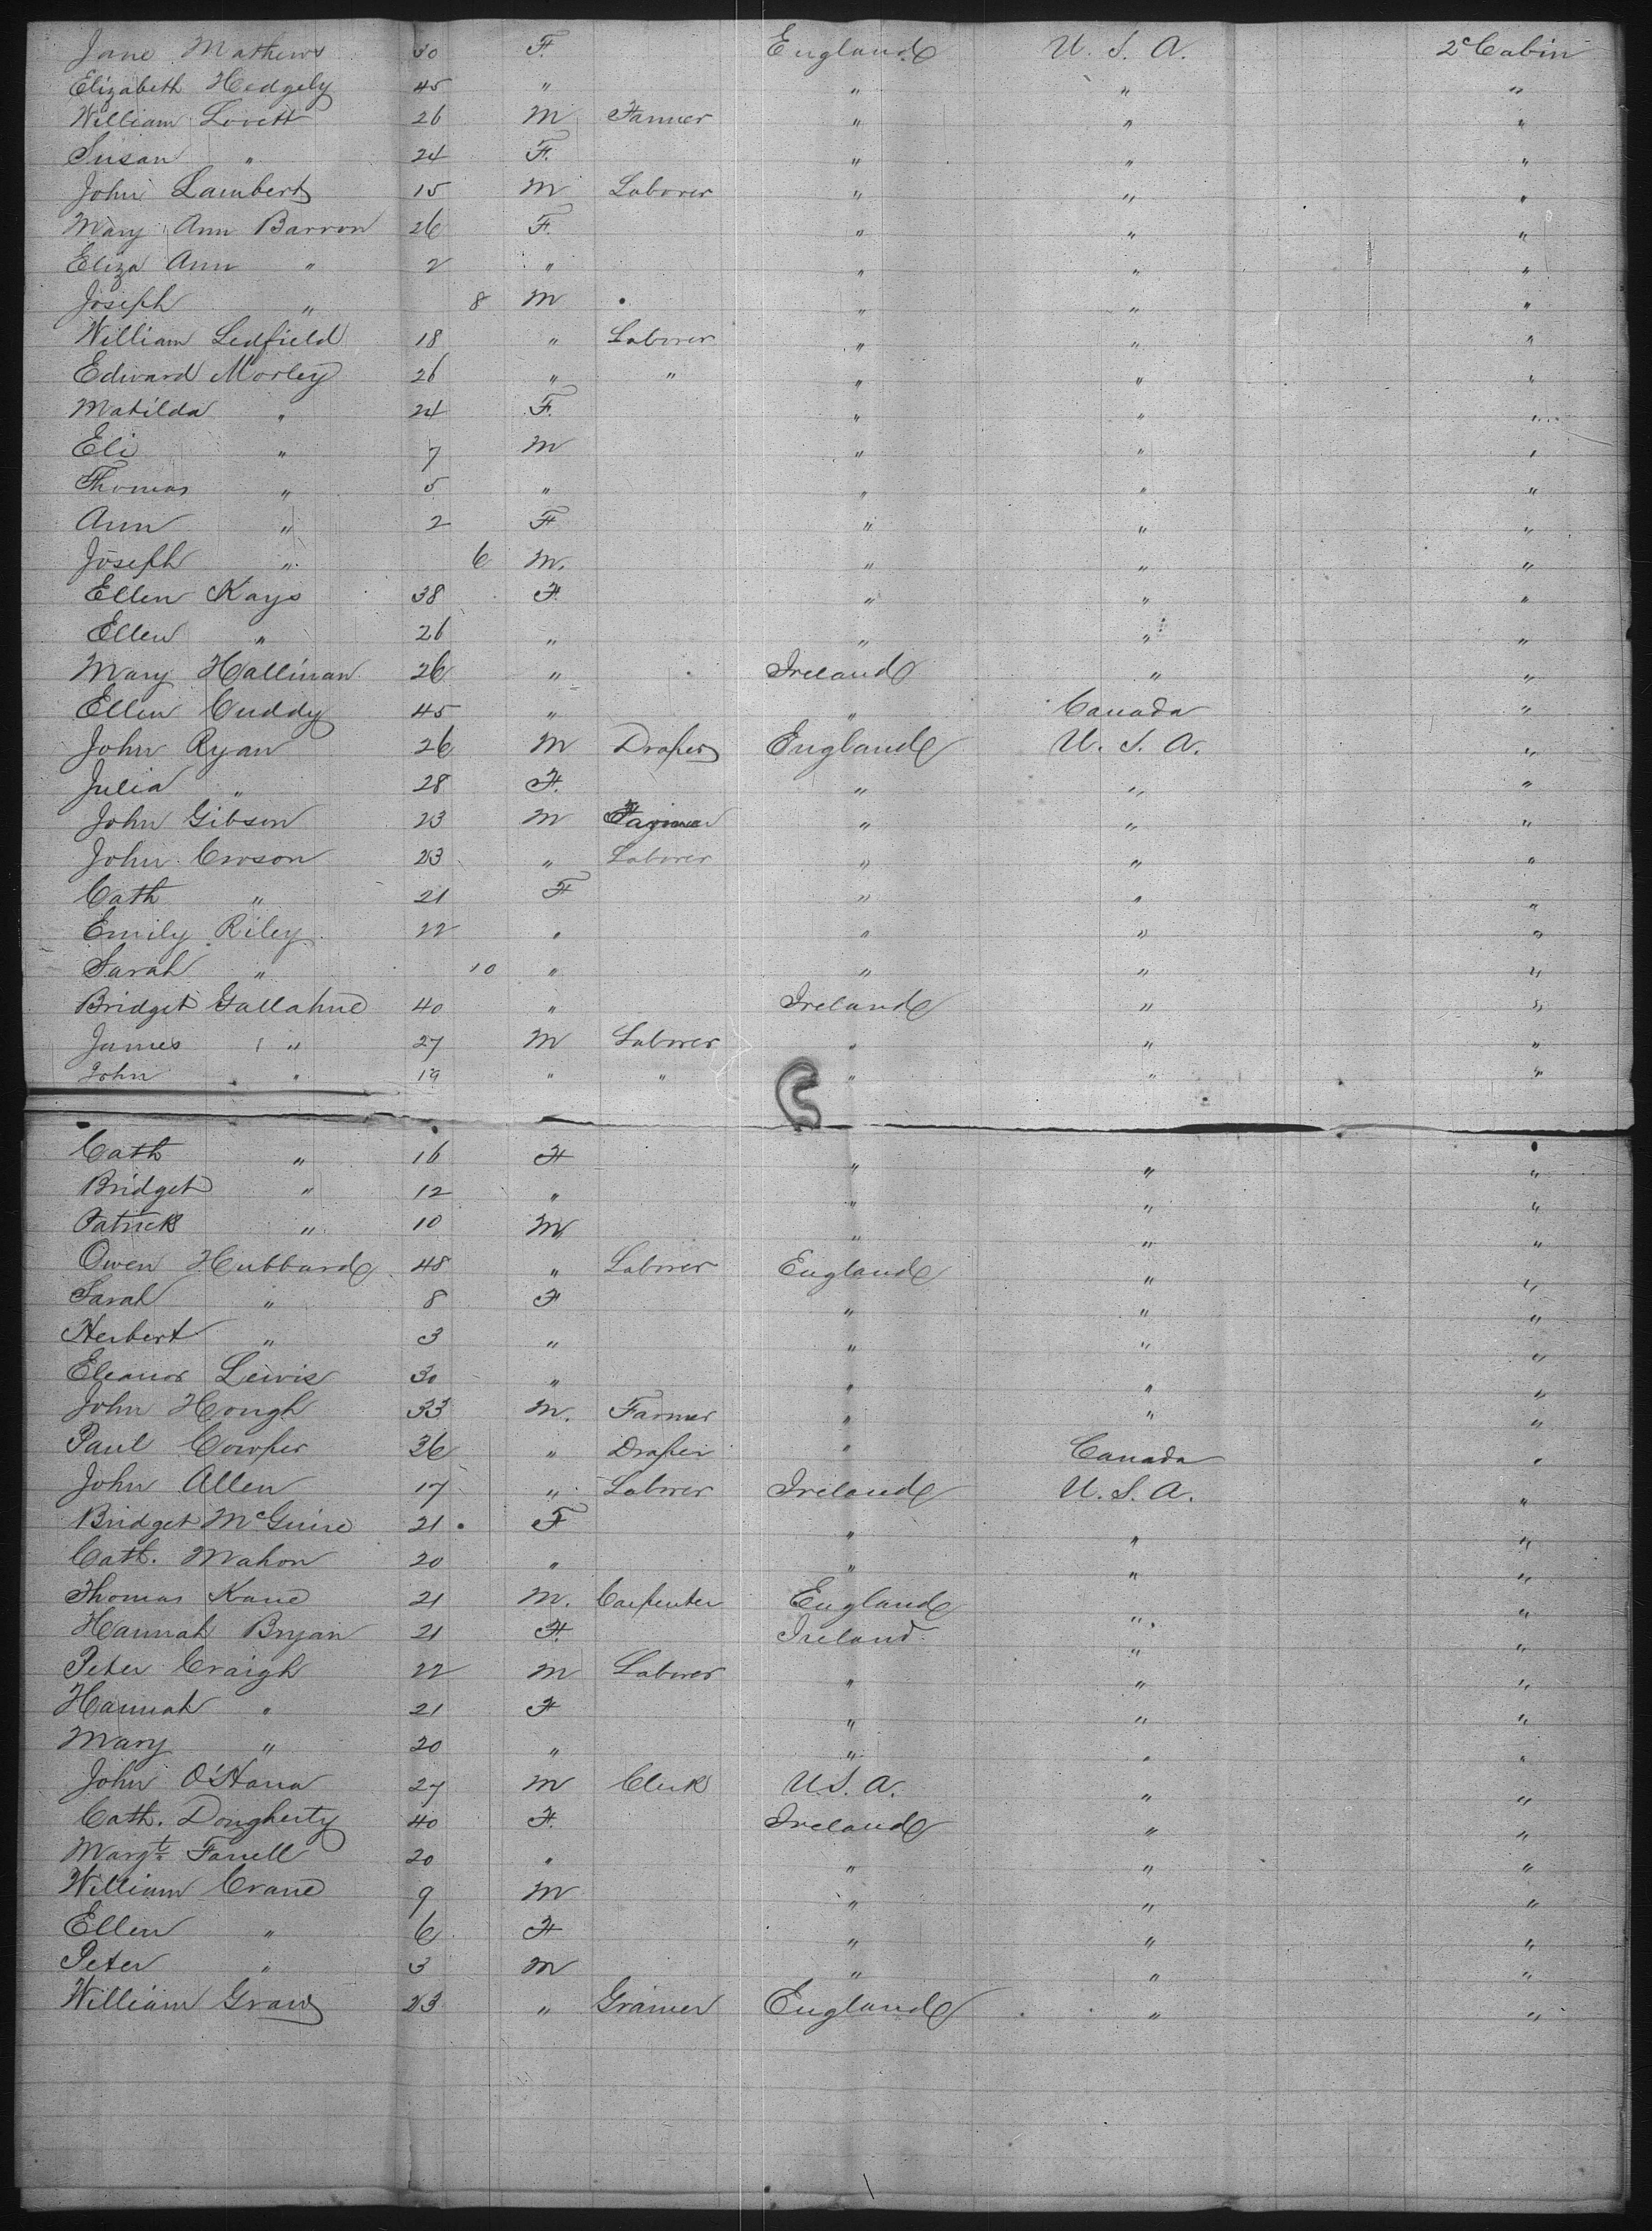 Jane Mathews 30 F. England U. S. A. 2c Cabin
Elizabeth Hedgely 45 " " " "
William Lovett 26 M Farmer " " "
Susan " 24 F. " " "
John Lambert 15 M Laborer " " "
Mary Ann Barron 26 F. " " "
Eliza Ann " 2 " " " "
Joseph " 8 M " " "
William Ledfield 18 " Laborer " " "
Edward Morley 26 " " " " "
Matilda " 24 F. " " "
Eli " 7 M " " "
Thomas " 5 " " " "
Ann " 2 F " " "
Joseph " 6 M. " " "
Ellen Kays 38 F. " " "
Ellen " 26 " " " "
Mary Hallinan 26 " Ireland " "
Ellen Cuddy 45 " " Canada "
John Ryan 26 M Draper England U. S. A. "
Julia " 28 F. " " "
John Gibson 23 M Farmer " " "
John Croson 23 " Laborer " " "
Cath " 21 F " " "
Emily Riley 22 " " " "
Sarah " 10 " " " "
Bridget Gallahue 40 " Ireland " "
James " 27 M Laborer " " "
John " 19 " " " " "
Cath " 16 F " " "
Bridget " 12 " " " "
Patrick " 10 M " " "
Owen Hubbard 48 " Laborer England " "
Sarah " 8 F " " "
Herbert " 3 " " " "
Eleanor Lewis 30 " " " "
John Hough 33 M. Farmer " " "
Paul Cowper 36 " Draper " Canada "
John Allen 17 " Laborer Ireland U. S. A. "
Bridget McGuire 21 F " " "
Cath. Mahon 20 " " " "
Thomas Kane 21 M. Carpenter England " "
Hannah Bryan 21 F. Ireland " "
Peter Craigh 22 M Laborer " " "
Hannah " 21 F " " "
Mary " 20 " " " "
John O'Hara 27 M Clerk U. S. A. " "
Cath. Dougherty 40 F. Ireland " "
Margt Farrell 20 " " " "
William Crane 9 M " " "
Ellen " 6 F " " "
Peter " 3 M " " "
William 23 " England " "